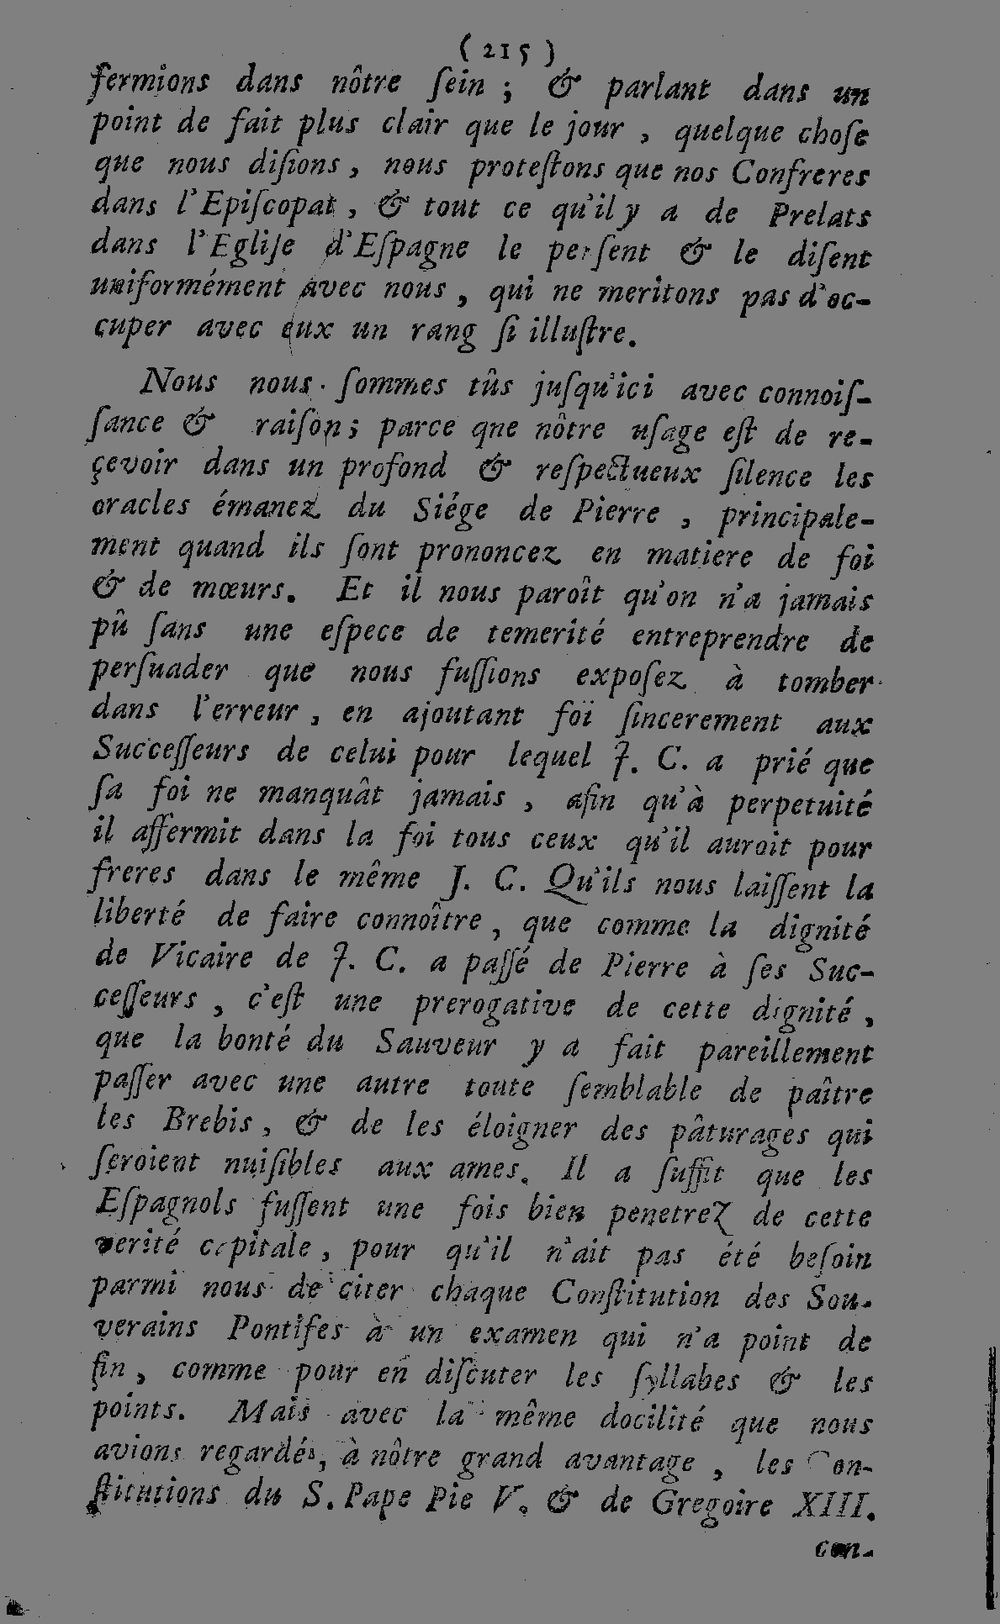 ( 215 )
fermions dans nôtre ſein ; & parlant dans un
point de fait plus clair que le jour , quelque choſe
que nous diſions , nous proteſtons que nos Confreres
dans l'Epiſcopat , & tout ce qu'il y a de Prelats
dans l'Egliſe d'Eſpagne le penſent & le diſent
uniformément avec nous , qui ne meritons pas d'oc-
cuper avec eux un rang ſi illuſtre.
Nous nous ſommes tûs juſqu'ici avec connoiſ-
ſance & raiſon ; parce qne nôtre uſage eſt de re-
çevoir dans un profond & reſpectueux ſilence les
oracles émanez du Siége de Pierre , principale-
ment quand ils ſont prononcez en matiere de foi
& de mœurs. Et il nous paroît qu'on n'a jamais
pû ſans une eſpece de temerité entreprendre de
perſuader que nous fuſſions expoſez à tomber
dans l'erreur , en ajoutant foi ſincerement aux
Succeſſeurs de celui pour lequel J. C. a prié que
ſa foi ne manquât jamais , afin qu'à perpetuité
il affermit dans la foi tous ceux qu'il auroit pour
freres dans le même J. C. Qu'ils nous laiſſent la
liberté de faire connoître , que comme la dignité
de Vicaire de J. C. a paſſé de Pierre à ſes Suc-
ceſſeurs , c'eſt une prerogative de cette dignité ,
que la bonté du Sauveur y a fait pareillement
paſſer avec une autre toute ſemblable de paître
les Brebis , & de les éloigner des pâturages qui
ſeroient nuiſibles aux ames. Il a ſuffit que les
Eſpagnols fuſſent une fois bien penetrez de cette
verité capitale , pour qu'il n'ait pas été beſoin
parmi nous de citer chaque Conſtitution des Sou-
verains Pontifes à un examen qui n'a point de
fin , comme pour en diſcuter les ſyllabes & les
points. Mais avec la même docilité que nous
avions regardés, à nôtre grand avantage , les Con-
ſtitutions du S. Pape Pie V. & de Gregoire XIII.
con-